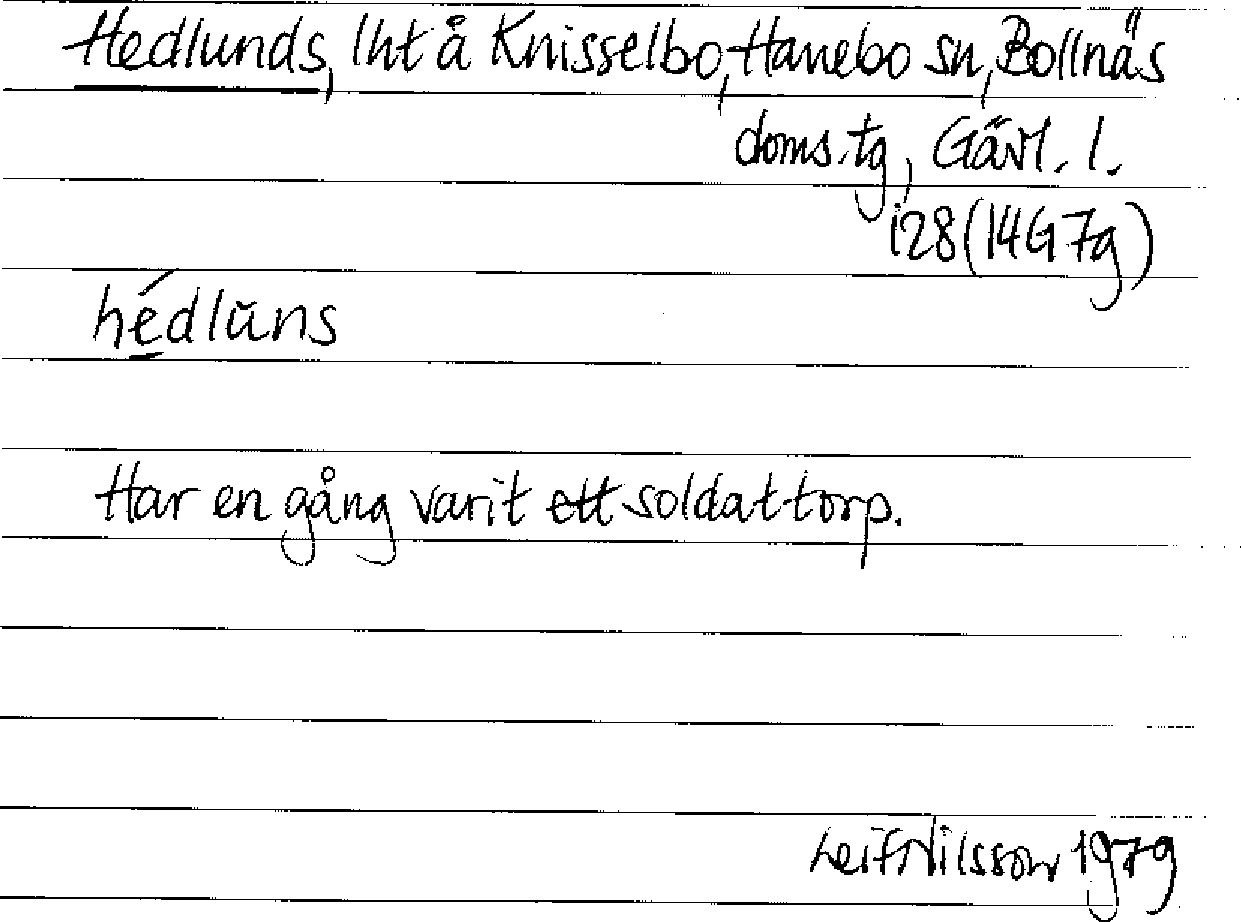 Hedlunds, lht å Knisselbo, Hanebo sn, Bollnäs
doms.tg, Gävl. l.
i28 (14G7g)
hédlŭns
Har en gång varit ett soldattorp.
Leif Nilsson 1979